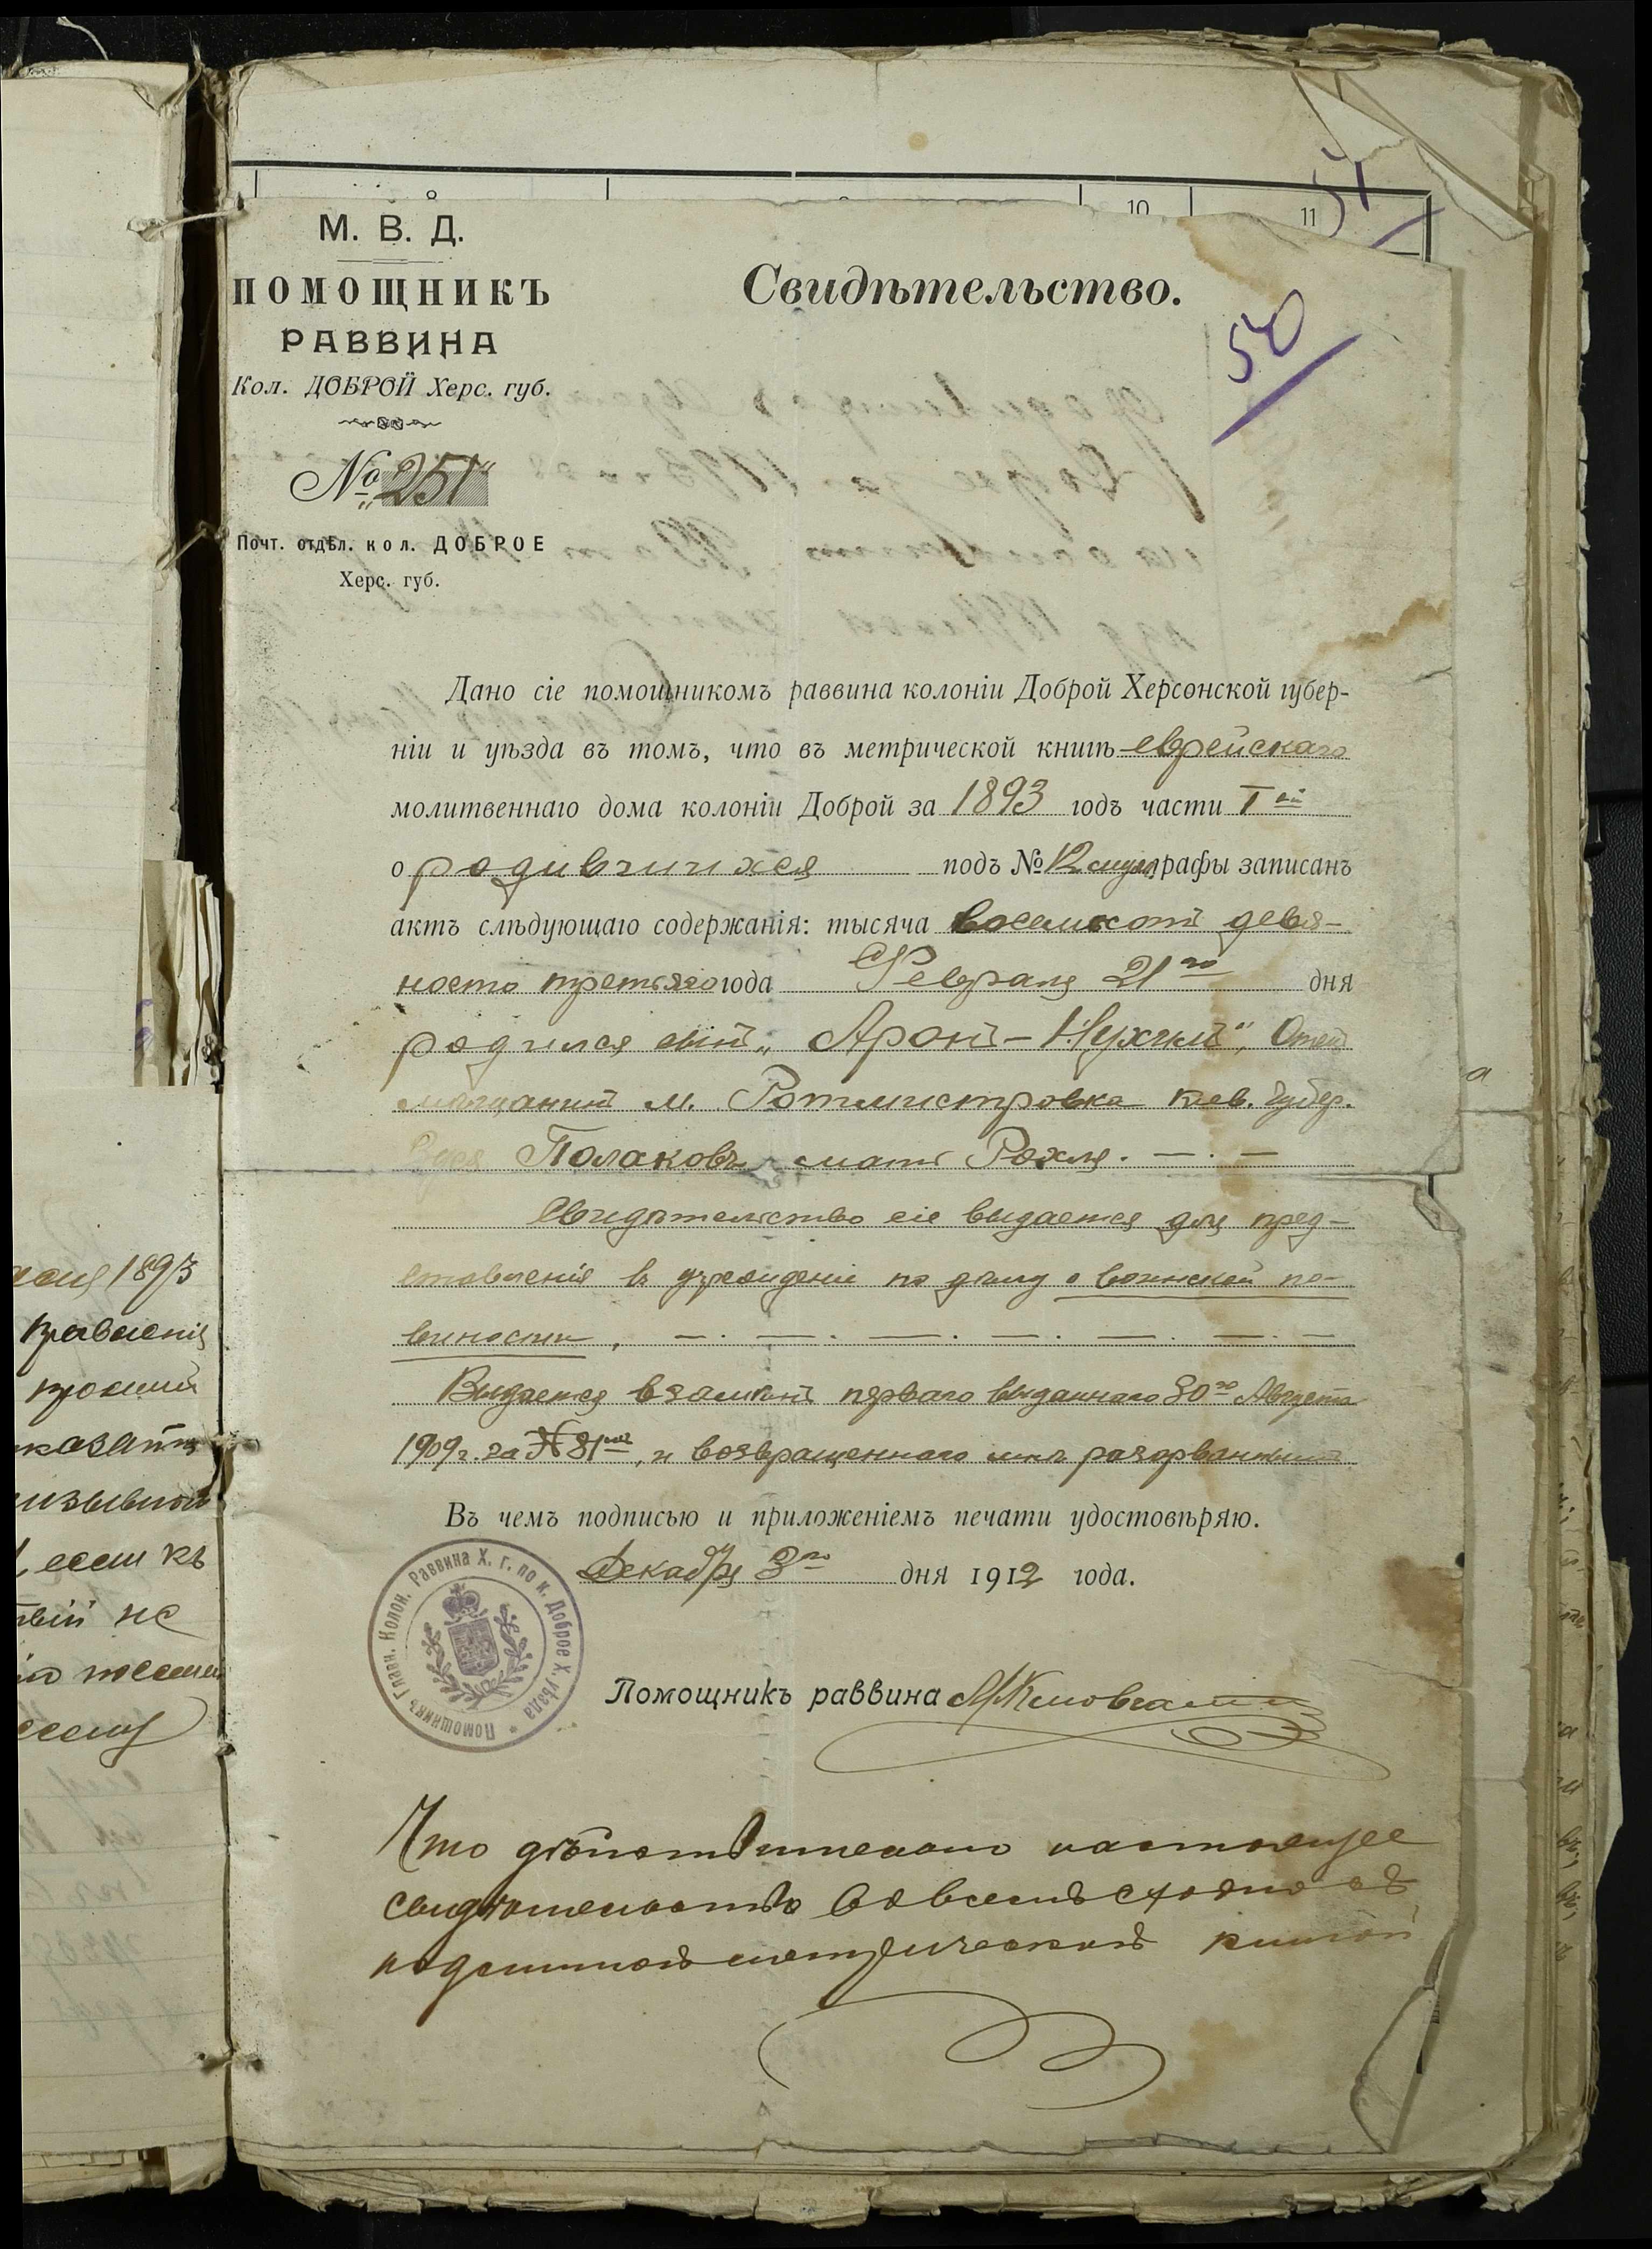 10
11
51
М. В. Д.
ПОМОЩНИКЪ
РАВВИНА
Кол. ДОБРОЙ Херс. губ.
№ „251“
Почт. отдѣл. кол. ДОБРОЕ
Херс. губ.
Свидѣтельство.
50
Дано сіе помощникомъ раввина колоніи Доброй Херсонской губер-
ніи и уѣзда въ томъ, что въ метрической книгѣ еврейскаго
молитвеннаго дома колоніи Доброй за 1893 годъ части Iой
о родившихся подъ № 12 графы записанъ
актъ слѣдующаго содержанія: тысяча восемьсотъ девя-
носто третьяго года Февраля 21го дня
родился сынъ „Аронъ-Нухимъ“, Отец
мѣщанинъ м. Ротмистровка Кіев. Губер.
Полаковъ, мать Рохля. — . —
Свидѣтельство сіе выдается для пред-
ставленія въ учрежденіе по дѣлу о воинской по-
винности, — . — . — . — . — . — . —
Выдается взамѣнъ перваго выданнаго 30го Августа
1909 г. за № 81мъ, и возвращеннаго мнѣ разорваннымъ
Въ чемъ подписью и приложеніемъ печати удостовѣряю.
Декабря 3го дня 1912 года.
Помощникъ Глав. Колон. Раввина Х. г. по к. Доброе Х. уѣзда
Помощникъ раввина
Что дѣйствительно настоящее
свидѣтельство во всемъ сходно съ
подлинной метрической книгой
1893
правленія
если къ
не